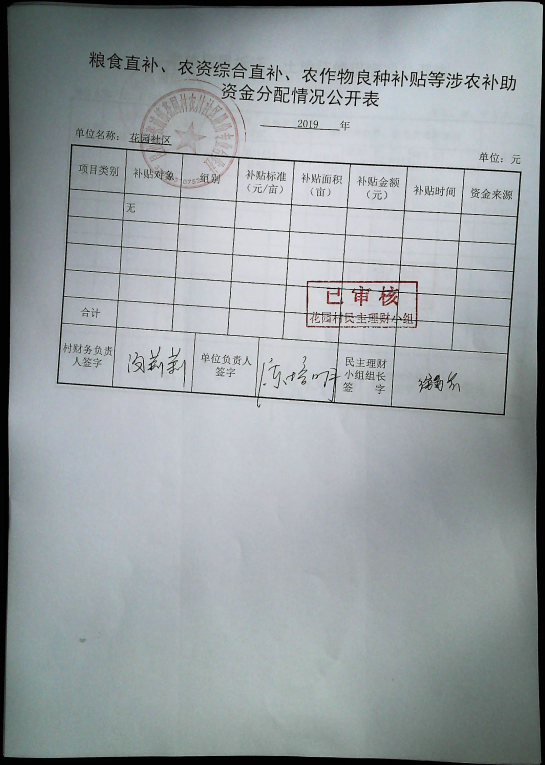 粮食直补、农资综合直补、农作物良种补贴等涉农补助
资金分配情况公开表
2019 年
单位名称： 花园社区
单位：元
项目类别 补贴对象 组别 补贴标准（元/亩） 补贴面积（亩） 补贴金额（元） 补贴时间 资金来源
无
已审核
花园村民主理财小组
合计
村财务负责人签字 单位负责人签字 民主理财小组组长签字